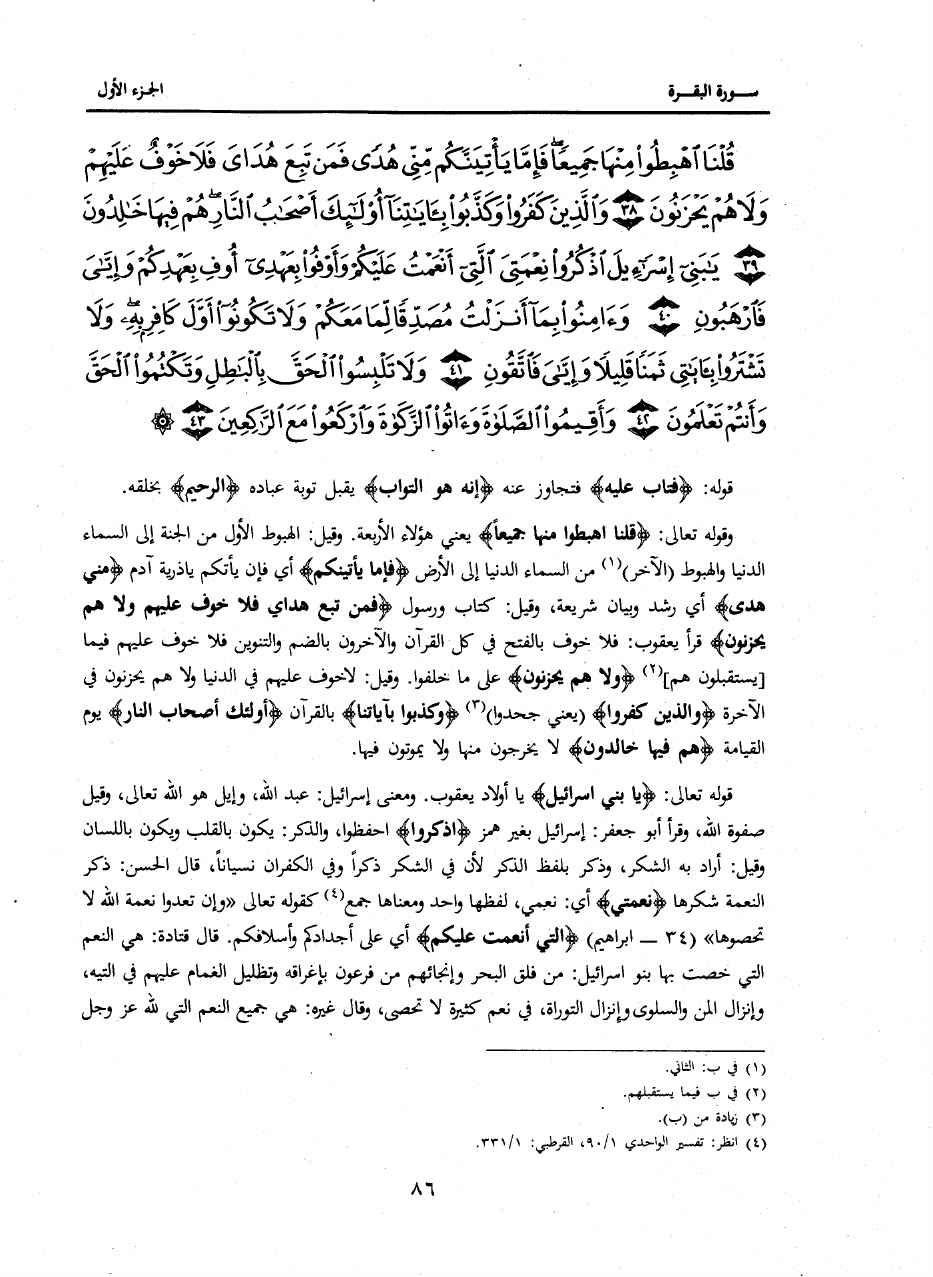 سورة البقرة
الجزء الأول
قُلْنَا ٱهْبِطُوا۟ مِنْهَا جَمِيعًۭا ۖ فَإِمَّا يَأْتِيَنَّكُم مِّنِّى هُدًۭى فَمَن تَبِعَ هُدَاىَ فَلَا خَوْفٌ عَلَيْهِمْ
وَلَا هُمْ يَحْزَنُونَ ٣٨ وَٱلَّذِينَ كَفَرُوا۟ وَكَذَّبُوا۟ بِـَٔايَـٰتِنَآ أُو۟لَـٰٓئِكَ أَصْحَـٰبُ ٱلنَّارِ ۖ هُمْ فِيهَا خَـٰلِدُونَ
٣٩ يَـٰبَنِىٓ إِسْرَٰٓءِيلَ ٱذْكُرُوا۟ نِعْمَتِىَ ٱلَّتِىٓ أَنْعَمْتُ عَلَيْكُمْ وَأَوْفُوا۟ بِعَهْدِىٓ أُوفِ بِعَهْدِكُمْ وَإِيَّـٰىَ
فَٱرْهَبُونِ ٤٠ وَءَامِنُوا۟ بِمَآ أَنزَلْتُ مُصَدِّقًۭا لِّمَا مَعَكُمْ وَلَا تَكُونُوٓا۟ أَوَّلَ كَافِرٍۭ بِهِۦ ۖ وَلَا
تَشْتَرُوا۟ بِـَٔايَـٰتِى ثَمَنًۭا قَلِيلًۭا وَإِيَّـٰىَ فَٱتَّقُونِ ٤١ وَلَا تَلْبِسُوا۟ ٱلْحَقَّ بِٱلْبَـٰطِلِ وَتَكْتُمُوا۟ ٱلْحَقَّ
وَأَنتُمْ تَعْلَمُونَ ٤٢ وَأَقِيمُوا۟ ٱلصَّلَوٰةَ وَءَاتُوا۟ ٱلزَّكَوٰةَ وَٱرْكَعُوا۟ مَعَ ٱلرَّٰكِعِينَ ٤٣ ۞
قوله: ﴿فتاب عليه﴾ فتجاوز عنه ﴿إنه هو التواب﴾ يقبل توبة عباده ﴿الرحيم﴾ بخلقه.
وقوله تعالى: ﴿قلنا اهبطوا منها جميعاً﴾ يعني هؤلاء الأربعة. وقيل: الهبوط الأول من الجنة إلى السماء
الدنيا والهبوط (الآخر)(١) من السماء الدنيا إلى الأرض ﴿فإما يأتينكم﴾ أي فإن يأتكم ياذرية آدم ﴿مني
هدى﴾ أي رشد وبيان شريعة، وقيل: كتاب ورسول ﴿فمن تبع هداي فلا خوف عليهم ولا هم
يحزنون﴾ قرأ يعقوب: فلا خوف بالفتح في كل القرآن والآخرون بالضم والتنوين فلا خوف عليهم فيما
[يستقبلون هم](٢) ﴿ولا هم يحزنون﴾ على ما خلفوا. وقيل: لاخوف عليهم في الدنيا ولا هم يحزنون في
الآخرة ﴿والذين كفروا﴾ (يعني جحدوا)(٣) ﴿وكذبوا بآياتنا﴾ بالقرآن ﴿أولئك أصحاب النار﴾ يوم
القيامة ﴿هم فيها خالدون﴾ لا يخرجون منها ولا يموتون فيها.
قوله تعالى: ﴿يا بني اسرائيل﴾ يا أولاد يعقوب. ومعنى إسرائيل: عبد الله، وإيل هو الله تعالى، وقيل
صفوة الله، وقرأ أبو جعفر: إسرائيل بغير همز ﴿اذكروا﴾ احفظوا، والذكر: يكون بالقلب ويكون باللسان
وقيل: أراد به الشكر، وذكر بلفظ الذكر لأن في الشكر ذكراً وفي الكفران نسياناً، قال الحسن: ذكر
النعمة شكرها ﴿نعمتي﴾ أي: نعمي، لفظها واحد ومعناها جمع(٤) كقوله تعالى «وإن تعدوا نعمة الله لا
تحصوها» (٣٤ – ابراهيم) ﴿التي أنعمت عليكم﴾ أي على أجدادكم وأسلافكم. قال قتادة: هي النعم
التي خصت بها بنو اسرائيل: من فلق البحر وإنجائهم من فرعون بإغراقه وتظليل الغمام عليهم في التيه،
وإنزال المن والسلوى وإنزال التوراة، في نعم كثيرة لا تحصى، وقال غيره: هي جميع النعم التي لله عز وجل
(١) في ب: الثاني.
(٢) في ب فيما يستقبلهم.
(٣) زيادة من (ب).
(٤) انظر: تفسير الواحدي ٩٠/١، القرطبي: ٣٣١/١.
٨٦